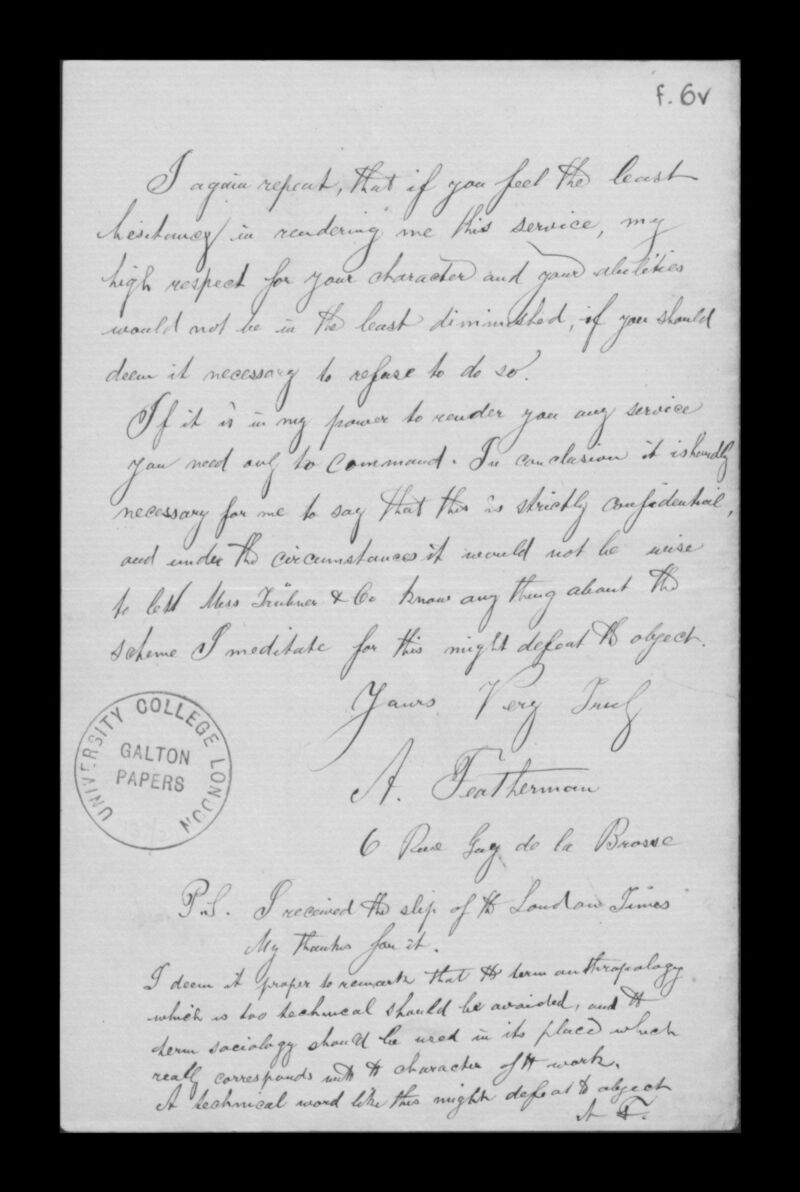 f. 6v
I again repeat, that if you feel the least
hesitancy in rendering me this service, my
high respect for your character and your abilities
would not be in the least diminished, if you should
deem it necessary to refuse to do so.
If it is in my power to render you any service
you need only to command. In conclusion it is hardly
necessary for me to say that this is strictly confidential,
and under the circumstances it would not be wise
to let Mess Trübner & Co know any thing about the
scheme I meditate for this might defeat the object.
Yours Very Truly
A. Featherman
6 Rue Guy de la Brosse
UNIVERSITY COLLEGE LONDON
GALTON
PAPERS
P.S. I received the slip of the London Times
My thanks for it.
I deem it proper to remark that the term anthropology
which is too technical should be avoided, and the
term sociology should be used in its place which
really corresponds with the character of the work.
A technical word like this might defeat the object
A F.